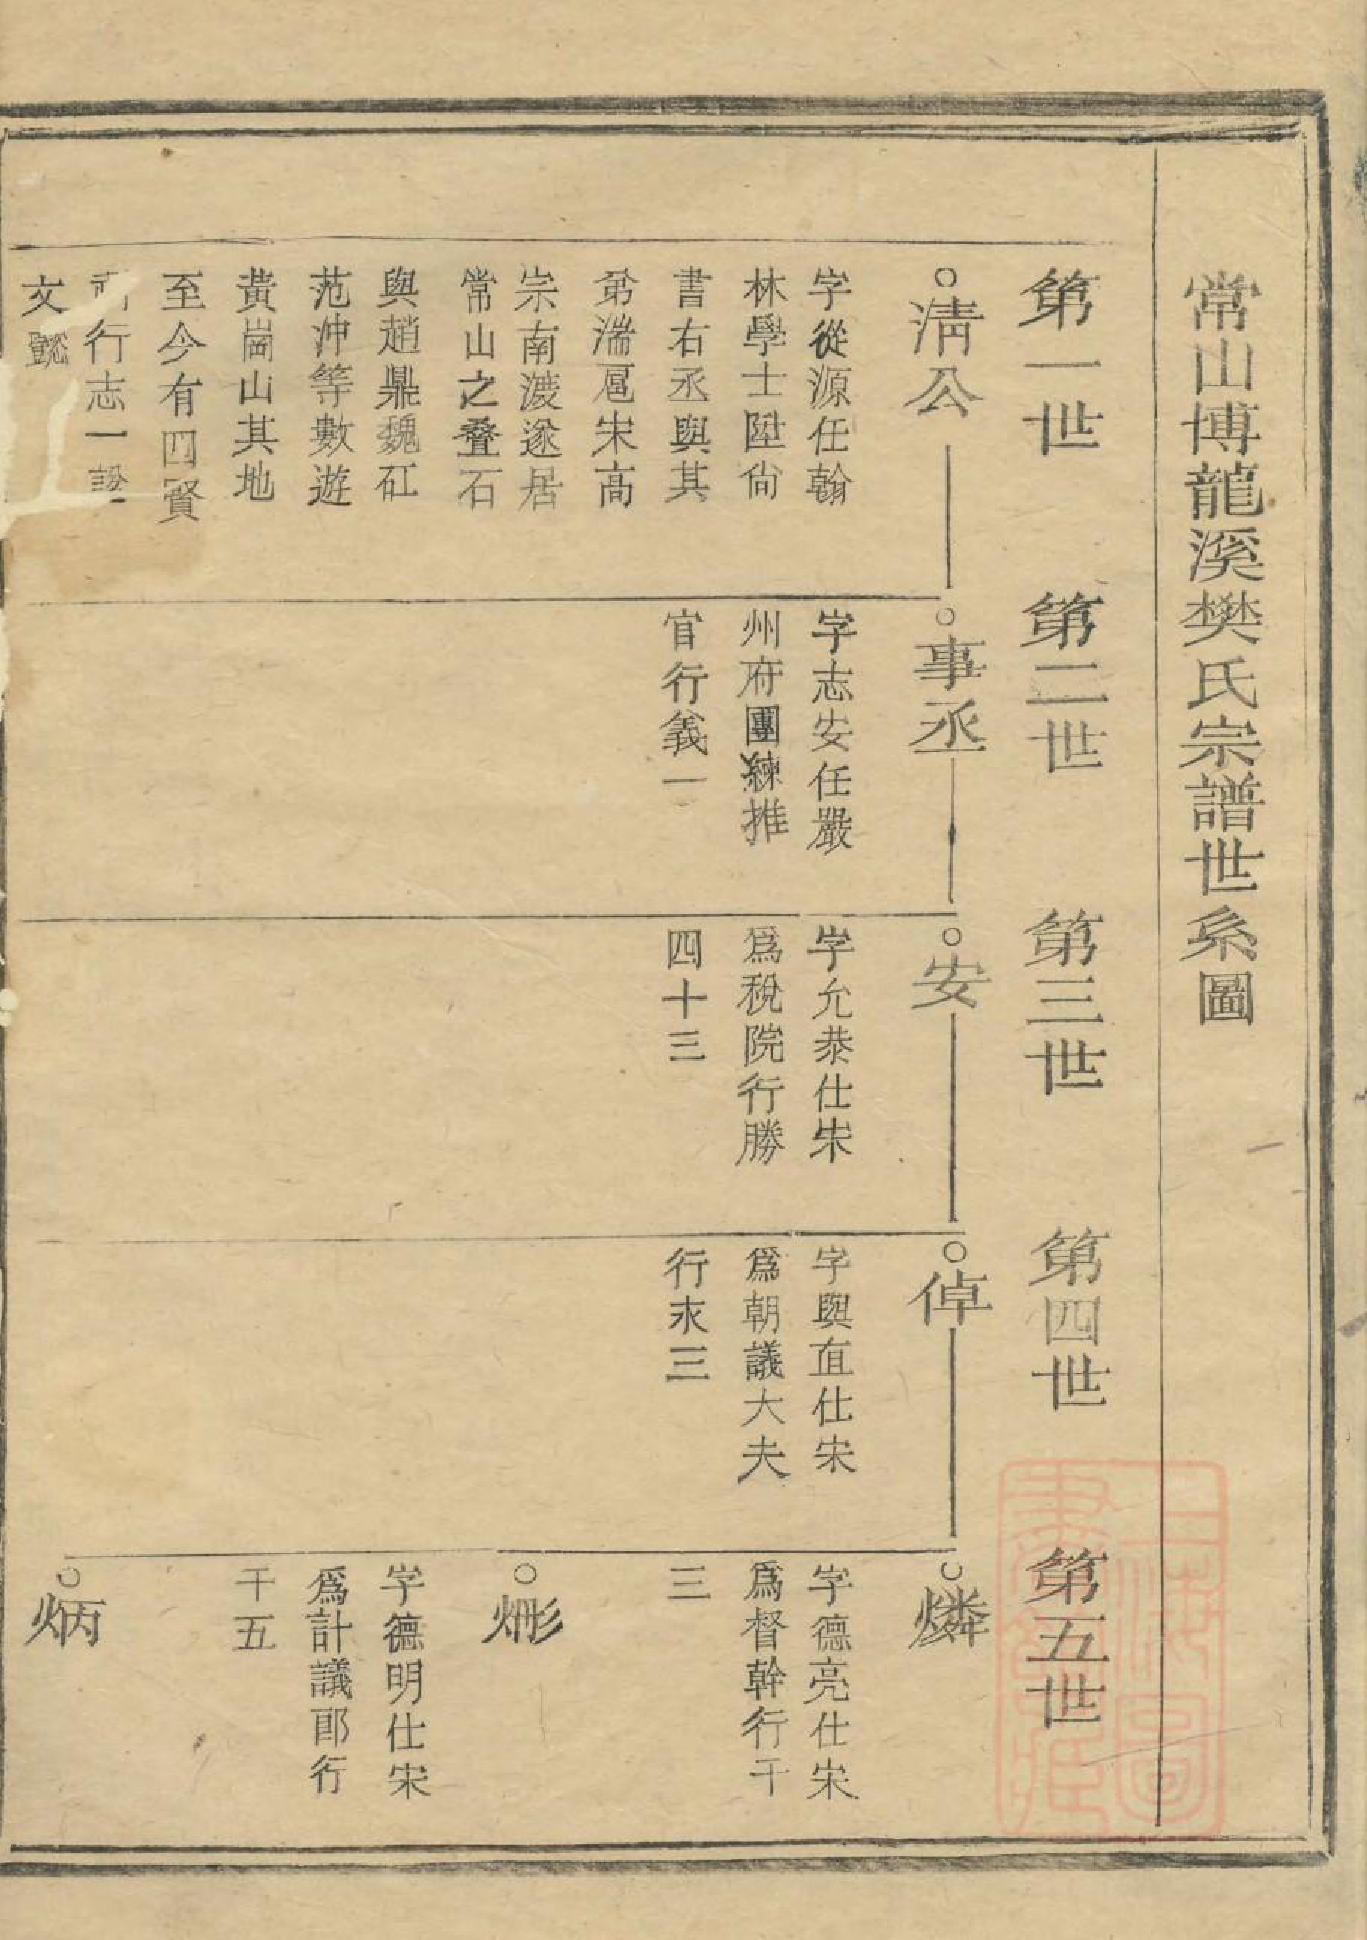 常山博龍溪樊氏宗譜世系圖
第一世
第二世
第三世
第四世
第五世
清公
字從源任翰
林學士陞尙
書右丞與其
弟湍扈宋高
宗南渡遂居
常山之叠石
與趙鼎魏矼
范沖等數遊
黃崗山其地
至今有四賢
行志一
文懿
事丞
字志安任嚴
州府團練推
官行義一
安
字允恭仕宋
爲稅院行勝
四十三
倬
字與直仕宋
爲朝議大夫
行末三
燐
字德亮仕宋
爲督幹行千
三
字德明仕宋
爲計議郎行
千五
炳